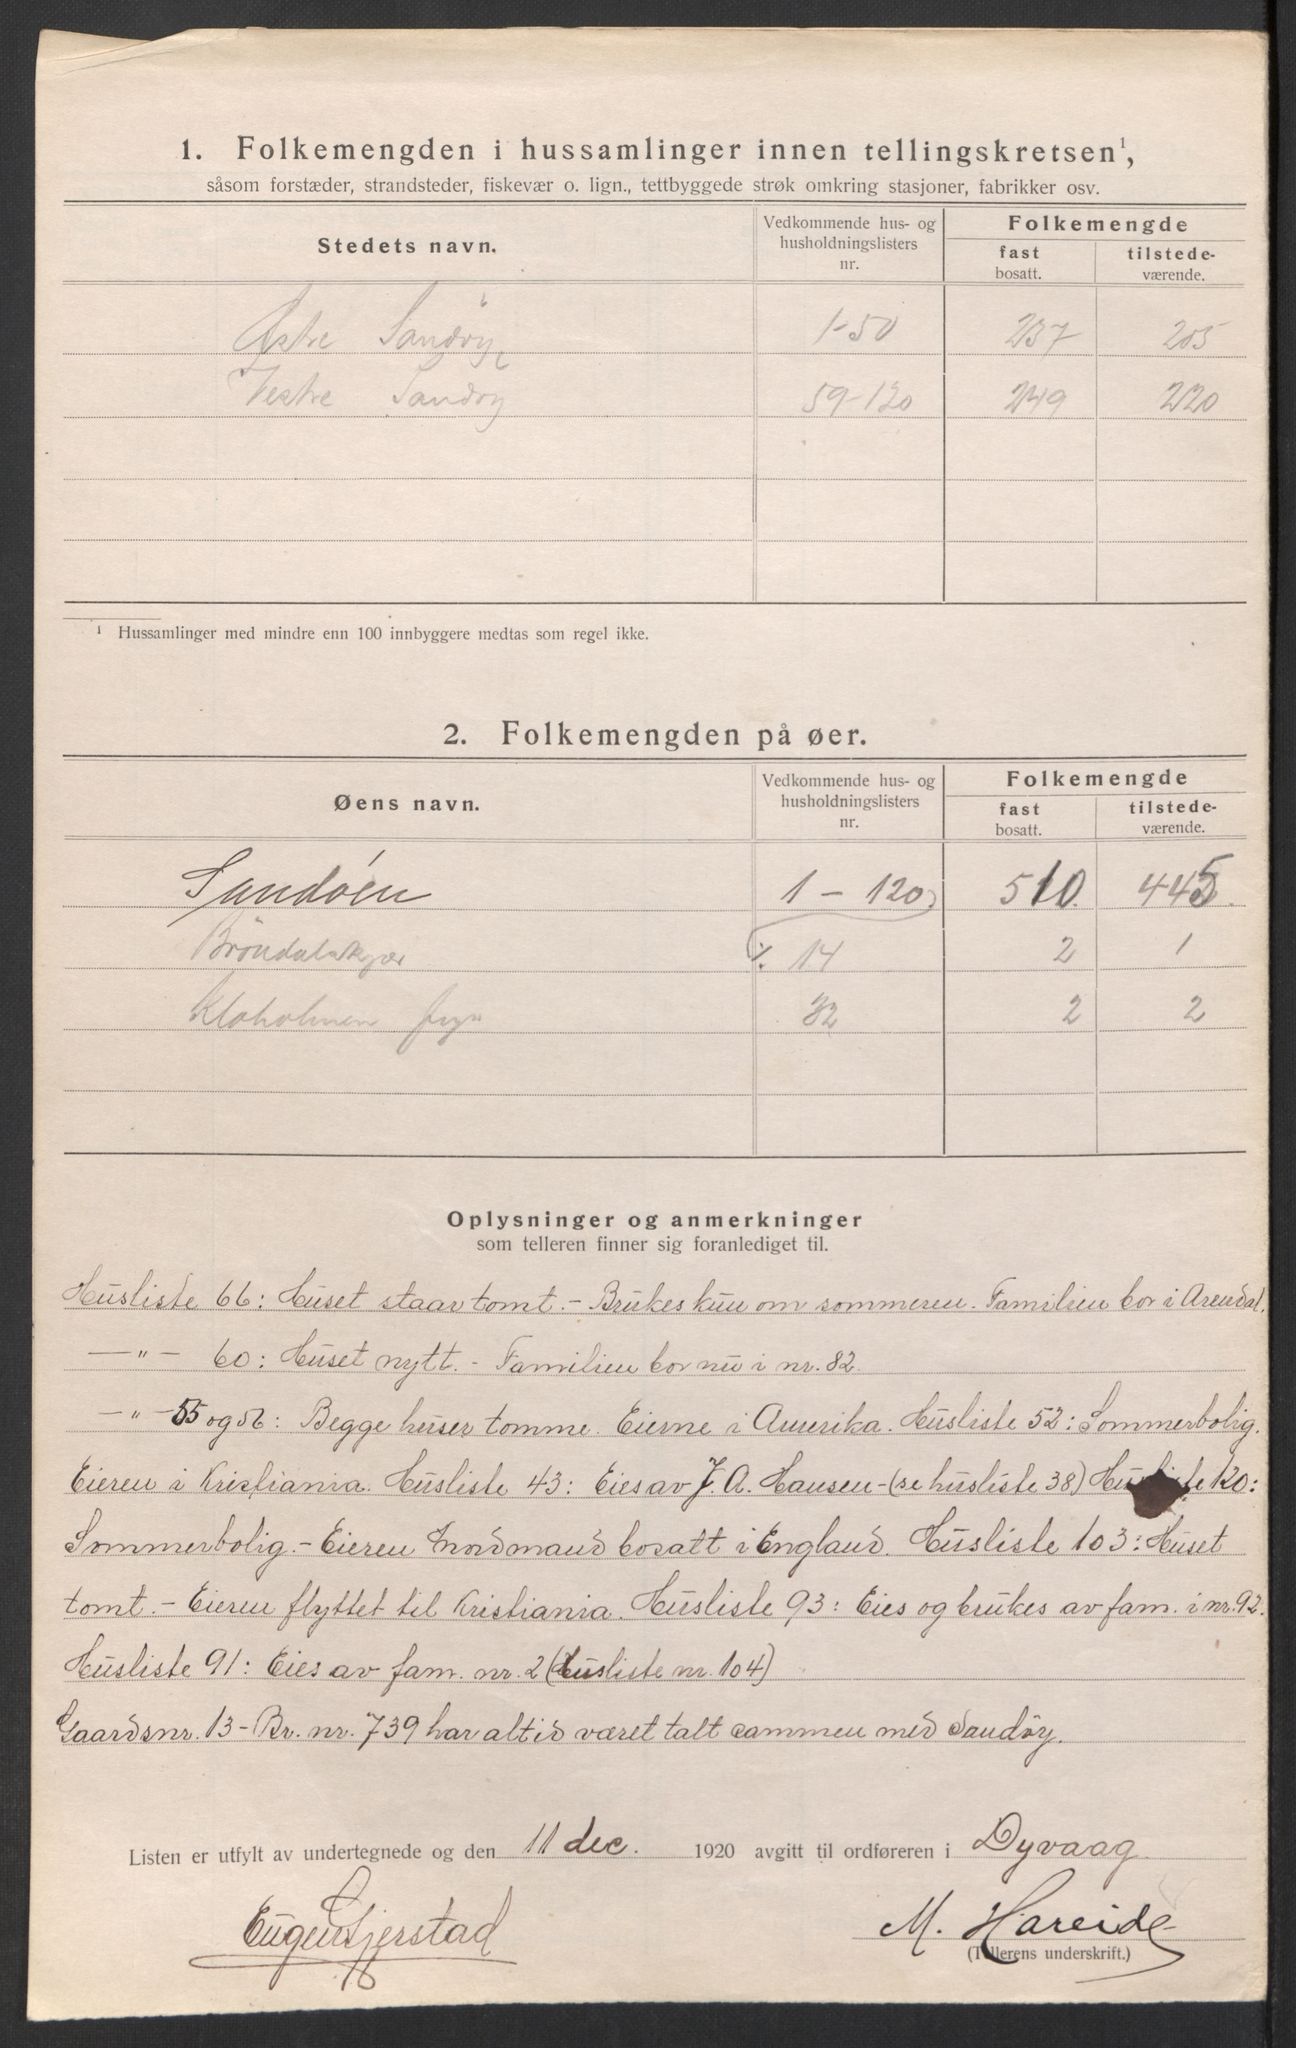 1. Folkemengden i hussamlinger innen tellingskretsen¹,
såsom forstæder, strandsteder, fiskevær o. lign., tettbyggede strøk omkring stasjoner, fabrikker osv.
Stedets navn. Vedkommende hus- og husholdningslisters nr. Folkemengde fast bosatt. tilstede-værende.
Østre Sandøy 1-50 237 205
Vestre Sandøy 59-120 249 220
¹ Hussamlinger med mindre enn 100 innbyggere medtas som regel ikke.
2. Folkemengden på øer.
Øens navn. Vedkommende hus- og husholdningslisters nr. Folkemengde fast bosatt. tilstede-værende.
Sandöen 1 - 120 510 445
Bröndalskjær 14 2 1
Kloholmen 32 2 2
Oplysninger og anmerkninger
som telleren finner sig foranlediget til.
Husliste 66: Huset staar tomt. - Brukes kun om sommeren. Familien bor i Arendal.
—"— 60: Huset nytt. - Familien bor nu i nr. 82.
—"— 55 og 56: Begge huser tomme. Eierne i Amerika. Husliste 52: Sommerbolig.
Eieren i Kristiania. Husliste 43: Eies av J. A. Hansen - (se husliste 38) Husliste 120:
Sommerbolig. - Eieren Nordmand bosatt i England. Husliste 103: Huset
tomt. - Eieren flyttet til Kristiania. Husliste 93: Eies og brukes av fam. i nr. 92.
Husliste 91: Eies av fam. nr. 2 (Husliste nr. 104)
Gaardsnr. 13 - Br. nr. 739 har altid været talt sammen med Sandöy.
Listen er utfylt av undertegnede og den 11 dec. 1920 avgitt til ordføreren i Dyvaag
Eugen Gjerstad M. Hareide
(Tellerens underskrift.)